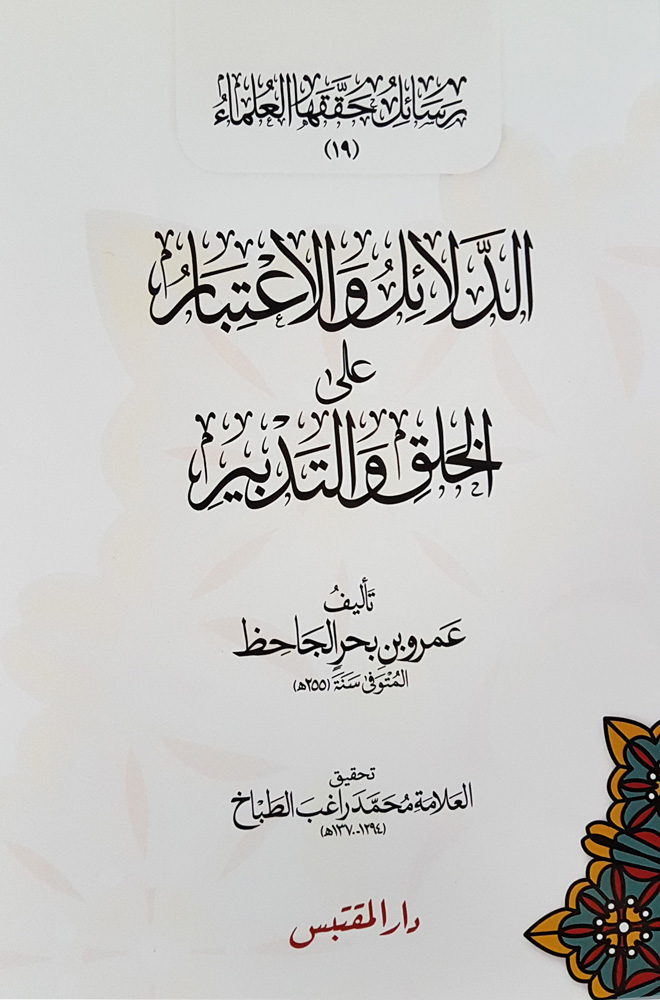 رَسَائِلُ حَقَّقَهَا العُلَمَاءُ
(١٩)
الدَّلَائِلُ وَالاعْتِبَارُ
على
الخَلْقِ وَالتَدْبِيرِ
تَأليفُ
عَمرو بن بحرٍ الجَاحِظ
المُتَوَفىٰ سَنَة (٢٥٥هـ)
تحقيق
العَلامة مُحَمَّد رَاغِب الطَبَّاخ
(١٢٩٤-١٣٧٠هـ)
دار المقتبس